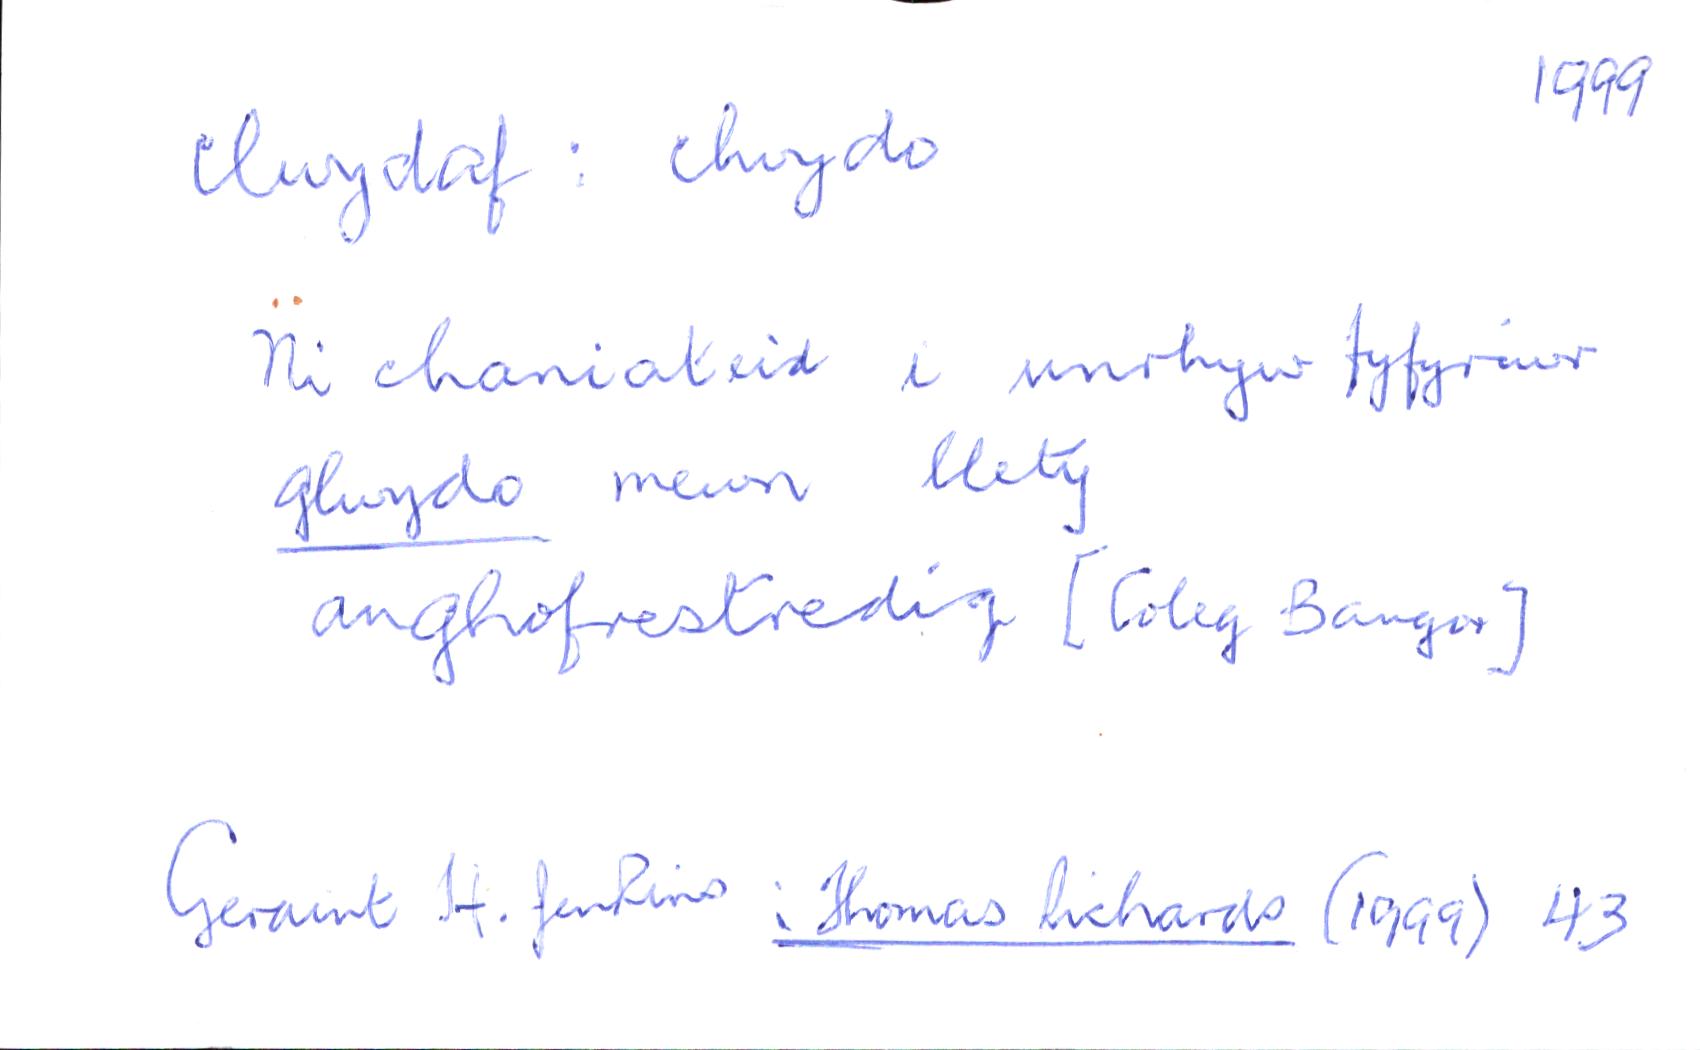 1999
clwydaf : clwydo
Ni chaniateid i unrhyw fyfyriwr
glwydo mewn llety
anghofrestredig [Coleg Bangor]
Geraint H. Jenkins : Thomas Richards (1999) 43